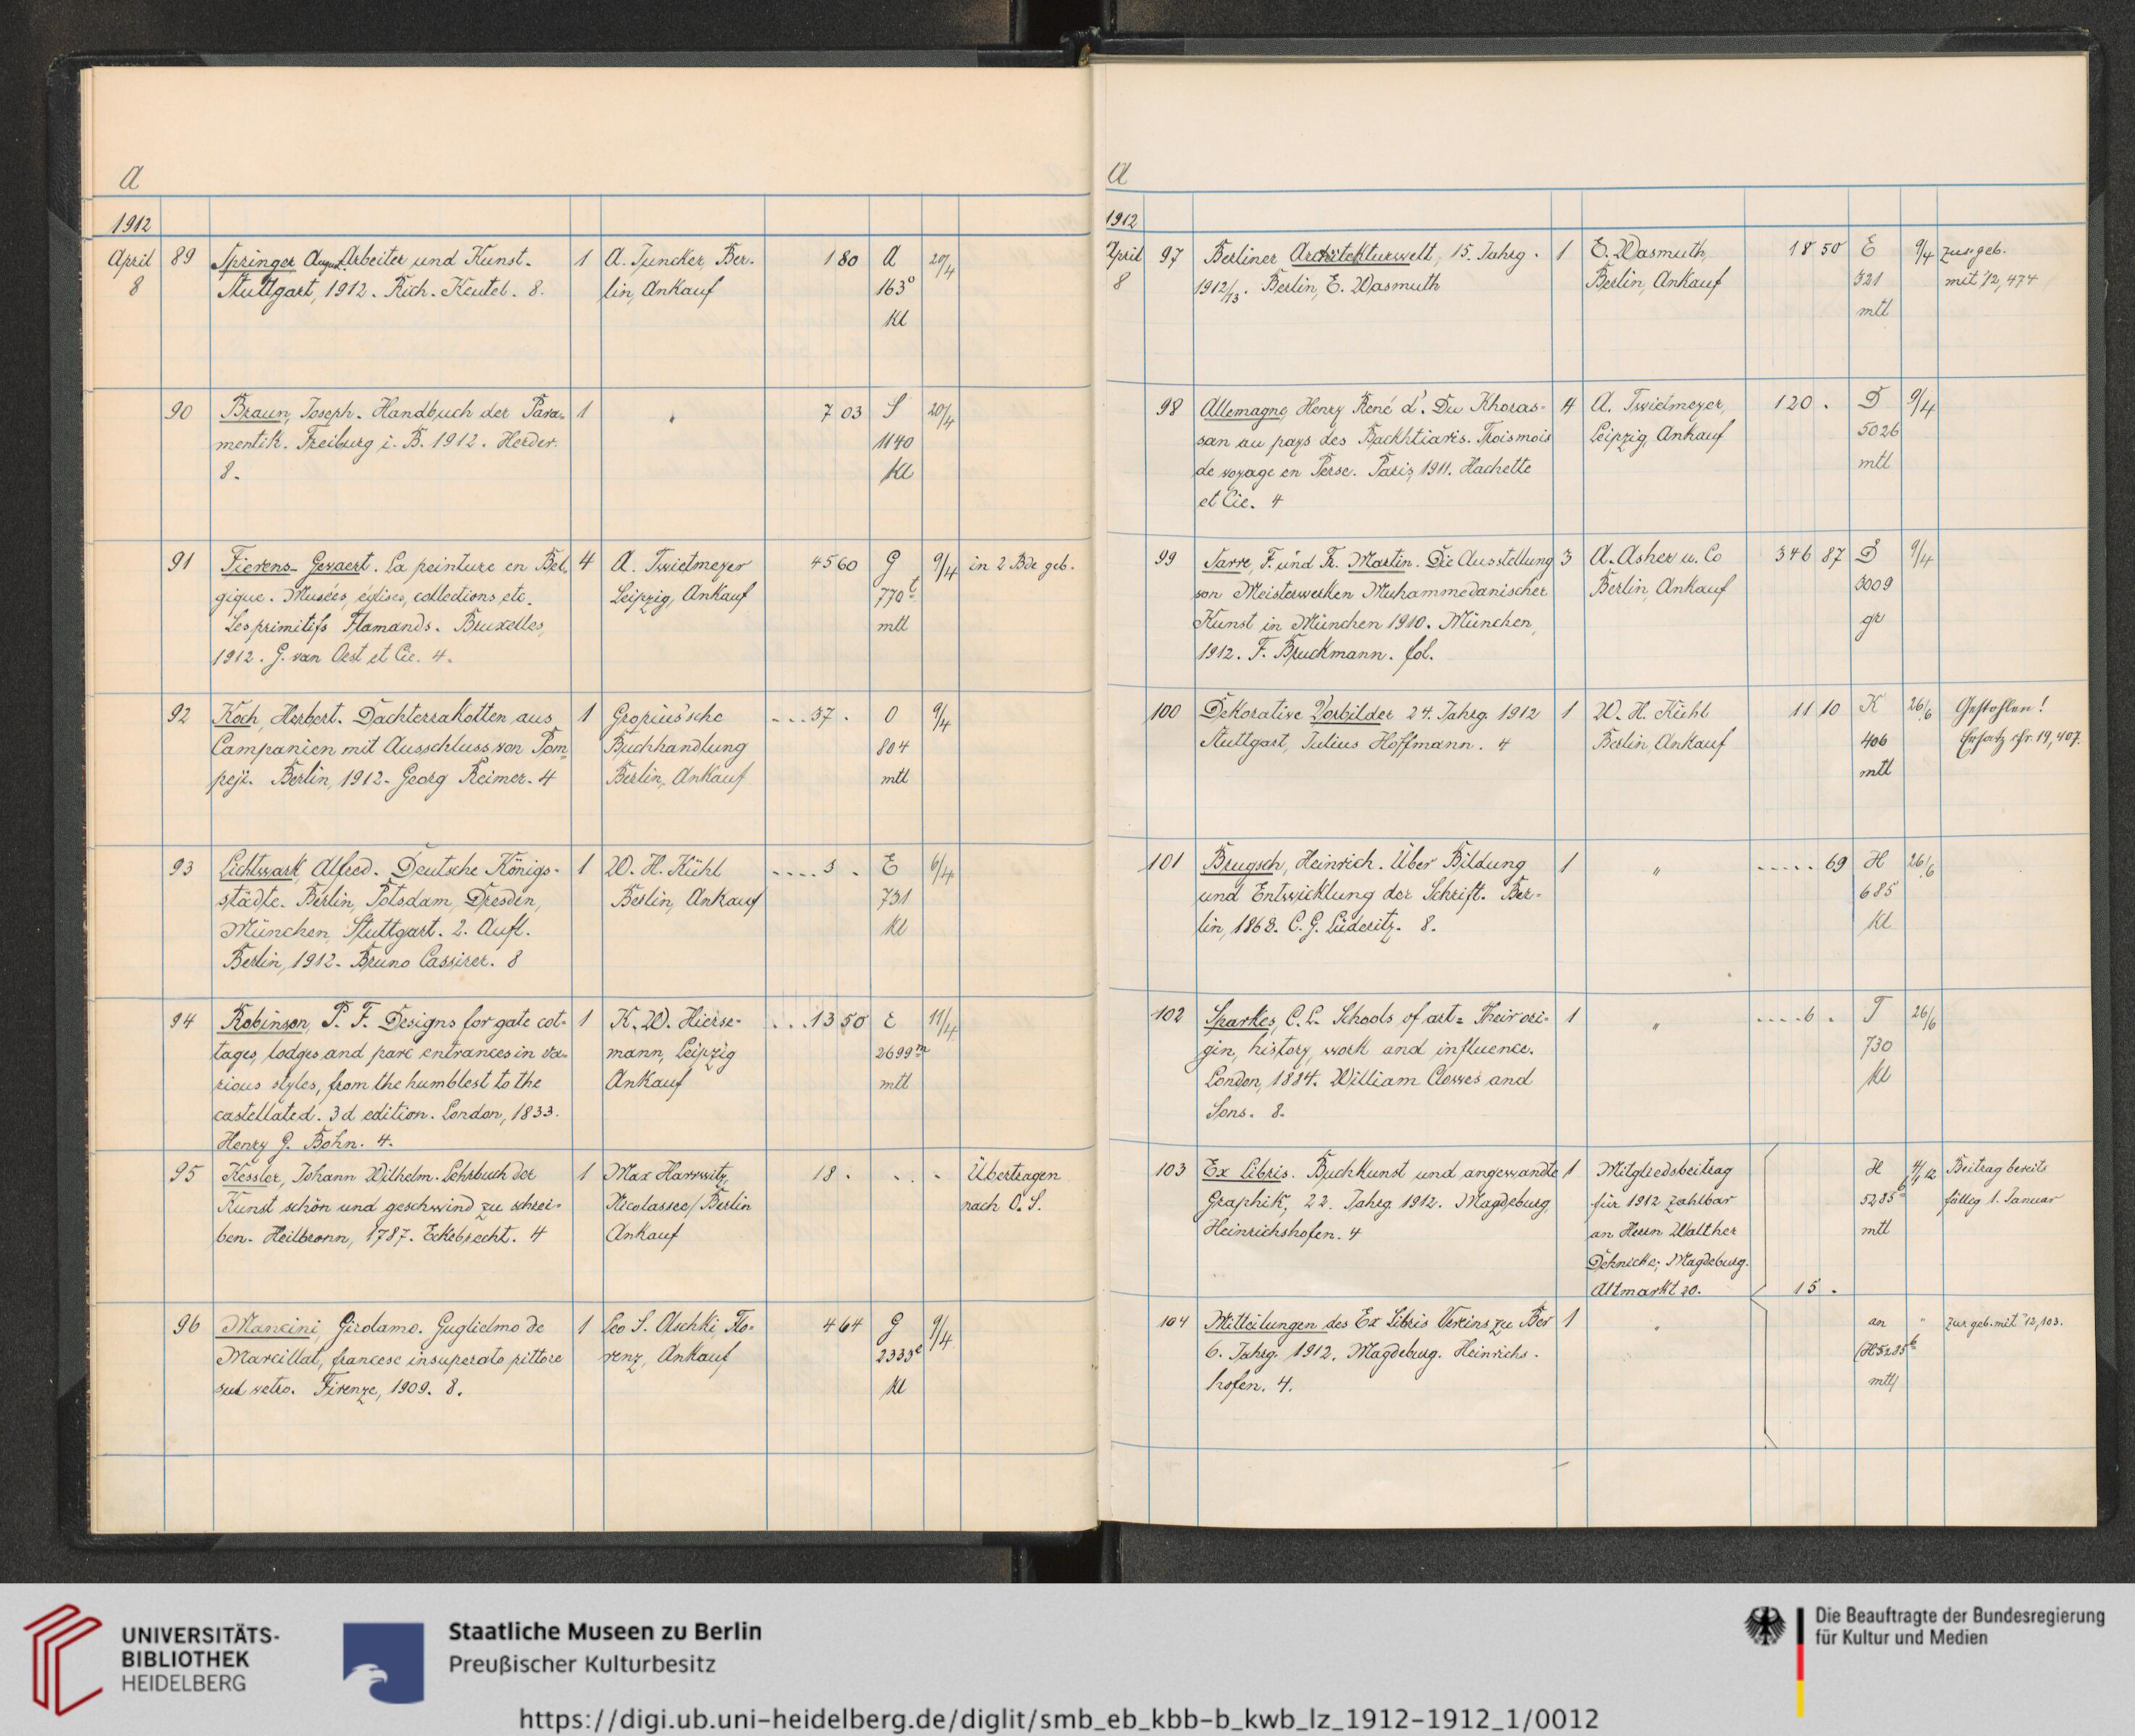 A
1912
April 89 Springer August. Arbeiter und Kunst. 1 A. Juncker, Ber- 1 80 A 20/4
8 Stuttgart, 1912. Rich. Keutel. 8. lin, Ankauf 163°
kl
90 Braun, Joseph. Handbuch der Para- 1 " 7 03 S 20/4
mentik. Freiburg i. B. 1912. Herder. 1140
8. kl
91 Fierens-Gevaert. La peinture en Bel- 4 A. Twietmeyer 45 60 G 9/4 in 2 Bde geb.
gique. Musées, églises, collections etc. Leipzig, Ankauf 770t
Les primitifs Flamands. Bruxelles, mtl
1912. G. van Oest et Cie. 4.
92 Koch, Herbert. Dachterrakotten aus 1 Gropius'sche 37 . O 9/4
Campanien mit Ausschluss von Pom- Buchhandlung 804
peji. Berlin, 1912. Georg Reimer. 4 Berlin, Ankauf mtl
93 Lichtwark, Alfred. Deutsche Königs- 1 W. H. Kühl 3 . E 6/4
städte. Berlin, Potsdam, Dresden, Berlin, Ankauf 731
München, Stuttgart. 2. Aufl. kl
Berlin, 1912. Bruno Cassirer. 8
94 Robinson, P. F. Designs for gate cot- 1 K. W. Hierse- 13 50 E 11/4
tages, lodges and parc entrances in va- mann, Leipzig 2699m
rious styles, from the humblest to the Ankauf mtl
castellated. 3d edition. London, 1833.
Henry G. Bohn. 4.
95 Kessler, Johann Wilhelm. Lehrbuch der 1 Max Harrwitz, 18 . . . . Übertragen
Kunst schön und geschwind zu schrei- Nicolassee/Berlin nach O. S.
ben. Heilbronn, 1787. Eckebrecht. 4 Ankauf
96 Mancini, Girolamo. Guglielmo de 1 Leo S. Olschki, Flo- 4 64 G 9/4
Marcillat, francese insuperato pittore renz, Ankauf 2333e
sul vetro. Firenze, 1909. 8. kl
A
1912
April 97 Berliner Architekturwelt, 15. Jahrg. 1 E. Wasmuth, 18 50 E 9/4 zus. geb.
8 1912/13. Berlin, E. Wasmuth Berlin, Ankauf 321 mit 12, 474
mtl
98 Allemagne, Henry René d'. Du Khoras- 4 A. Twietmeyer, 120 . D 9/4
san au pays des Backhtiaris. Trois mois Leipzig, Ankauf 5026
de voyage en Perse. Paris, 1911. Hachette mtl
et Cie. 4
99 Sarre, F. und Fr. Martin. Die Ausstellung 3 A. Asher u. Co 346 87 D 9/4
von Meisterwerken Muhammedanischer Berlin, Ankauf 3009
Kunst in München 1910. München, gr
1912. F. Bruckmann. fol.
100 Dekorative Vorbilder 24. Jahrg. 1912 1 W. H. Kühl 11 10 K 26/6 Gestohlen!
Stuttgart, Julius Hoffmann. 4 Berlin, Ankauf 406 Ersatz cfr. 19,407.
mtl
101 Brugsch, Heinrich. Über Bildung 1 " 69 H 26/6
und Entwicklung der Schrift. Ber- 685
lin, 1868. C. G. Lüderitz. 8. kl
102 Sparkes, C. L. Schools of art = Their ori- 1 " 6 . T 26/6
gin, history, work and influence. 730
London, 1884. William Clowes and kl
Sons. 8.
103 Ex Libris. Buchkunst und angewandte 1 Mitgliedsbeitrag H 4/12 Beitrag bereits
Graphik, 22. Jahrg. 1912. Magdeburg, für 1912 zahlbar 5285b fällig 1. Januar
Heinrichshofen. 4 an Herrn Walther mtl
Dehnicke, Magdeburg.
Altmarkt 20. 15 .
104 Mitteilungen des Ex Libris Vereins zu Ber 1 " an " zus. geb. mit 12, 103.
6. Jahrg. 1912. Magdeburg. Heinrichs- (H 5285b
hofen. 4. mtl)
UNIVERSITÄTS-
BIBLIOTHEK
HEIDELBERG
Staatliche Museen zu Berlin
Preußischer Kulturbesitz
Die Beauftragte der Bundesregierung
für Kultur und Medien
https://digi.ub.uni-heidelberg.de/diglit/smb_eb_kbb-b_kwb_lz_1912-1912_1/0012